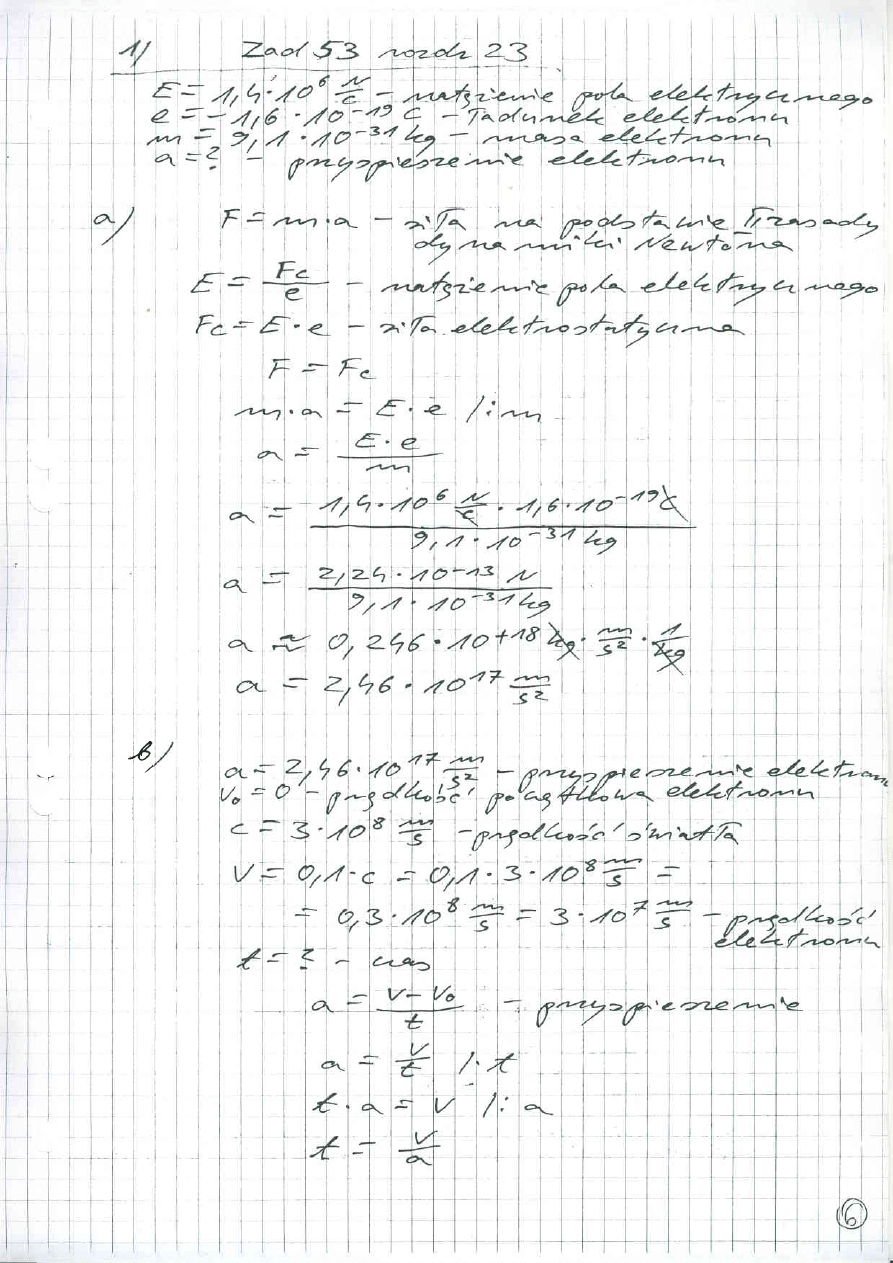 1) Zad 53 rozdz 23
E = 1,4·10⁶ N/C – natężenie pola elektrycznego
e = –1,6·10⁻¹⁹ C – ładunek elektronu
m = 9,1·10⁻³¹ kg – masa elektronu
a = ? – przyspieszenie elektronu
a) F = m·a – siła na podstawie II zasady
dynamiki Newtona
E = Fc/e – natężenie pola elektrycznego
Fc = E·e – siła elektrostatyczna
F = Fc
m·a = E·e /:m
a = E·e/m
a = 1,4·10⁶ N/C · 1,6·10⁻¹⁹ C / 9,1·10⁻³¹ kg
a = 2,24·10⁻¹³ N / 9,1·10⁻³¹ kg
a ≈ 0,246·10⁺¹⁸ kg · m/s² · 1/kg
a = 2,46·10¹⁷ m/s²
b)
a = 2,46·10¹⁷ m/s² – przyspieszenie elektronu
V₀ = 0 – prędkość początkowa elektronu
c = 3·10⁸ m/s – prędkość światła
V = 0,1·c = 0,1·3·10⁸ m/s =
= 0,3·10⁸ m/s = 3·10⁷ m/s – prędkość
elektronu
t = ? – czas
a = V–V₀/t – przyspieszenie
a = V/t /·t
t·a = V /:a
t = V/a
6